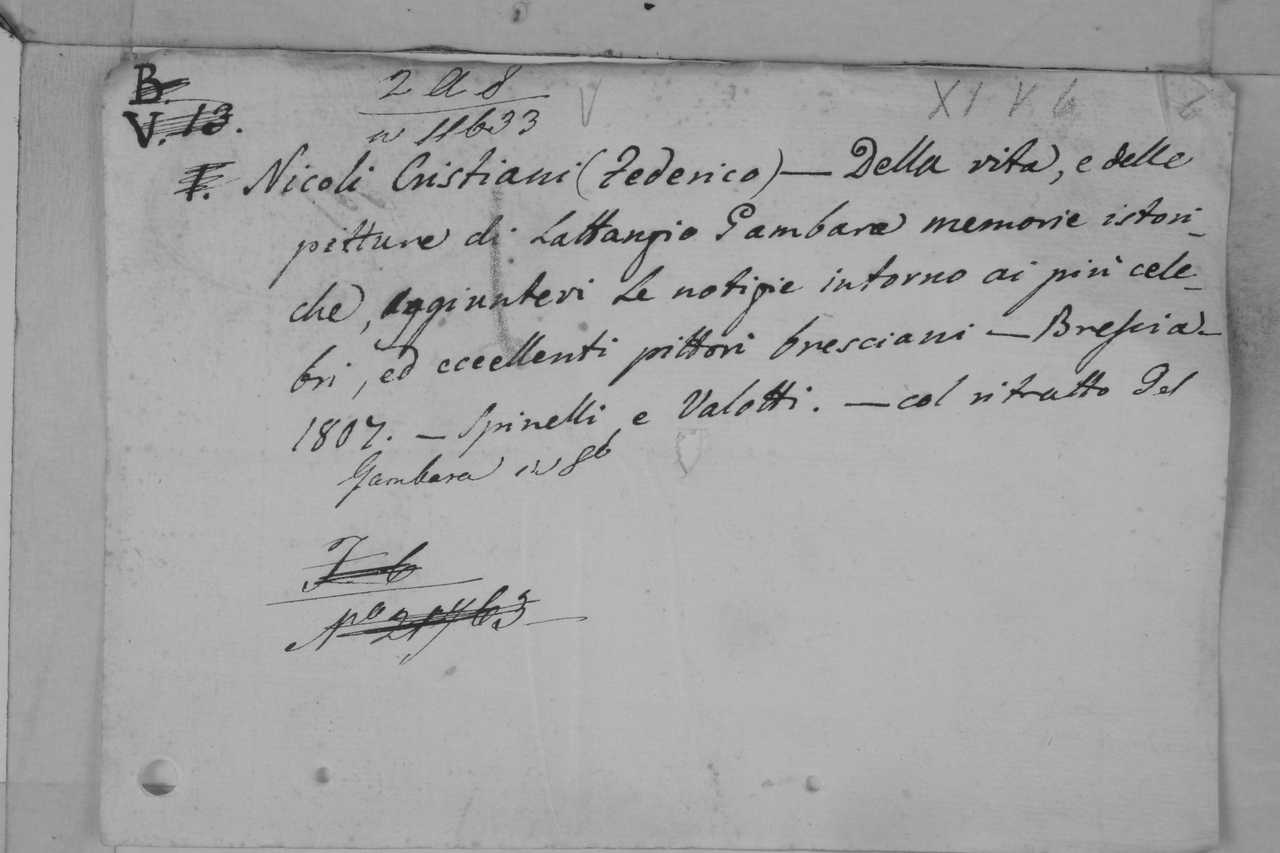 B.
V. 13.
2 A 8
n 11633
V
XI V 6
I. Nicoli Cristiani (Federico) — Della vita, e delle
pitture di Lattanzio Gambara memorie istori-
che, aggiuntevi le notizie intorno ai più cele-
bri, ed eccellenti pittori bresciani — Brescia -
1807. — Spinelli e Valotti. — col ritratto del
Gambara in 8º